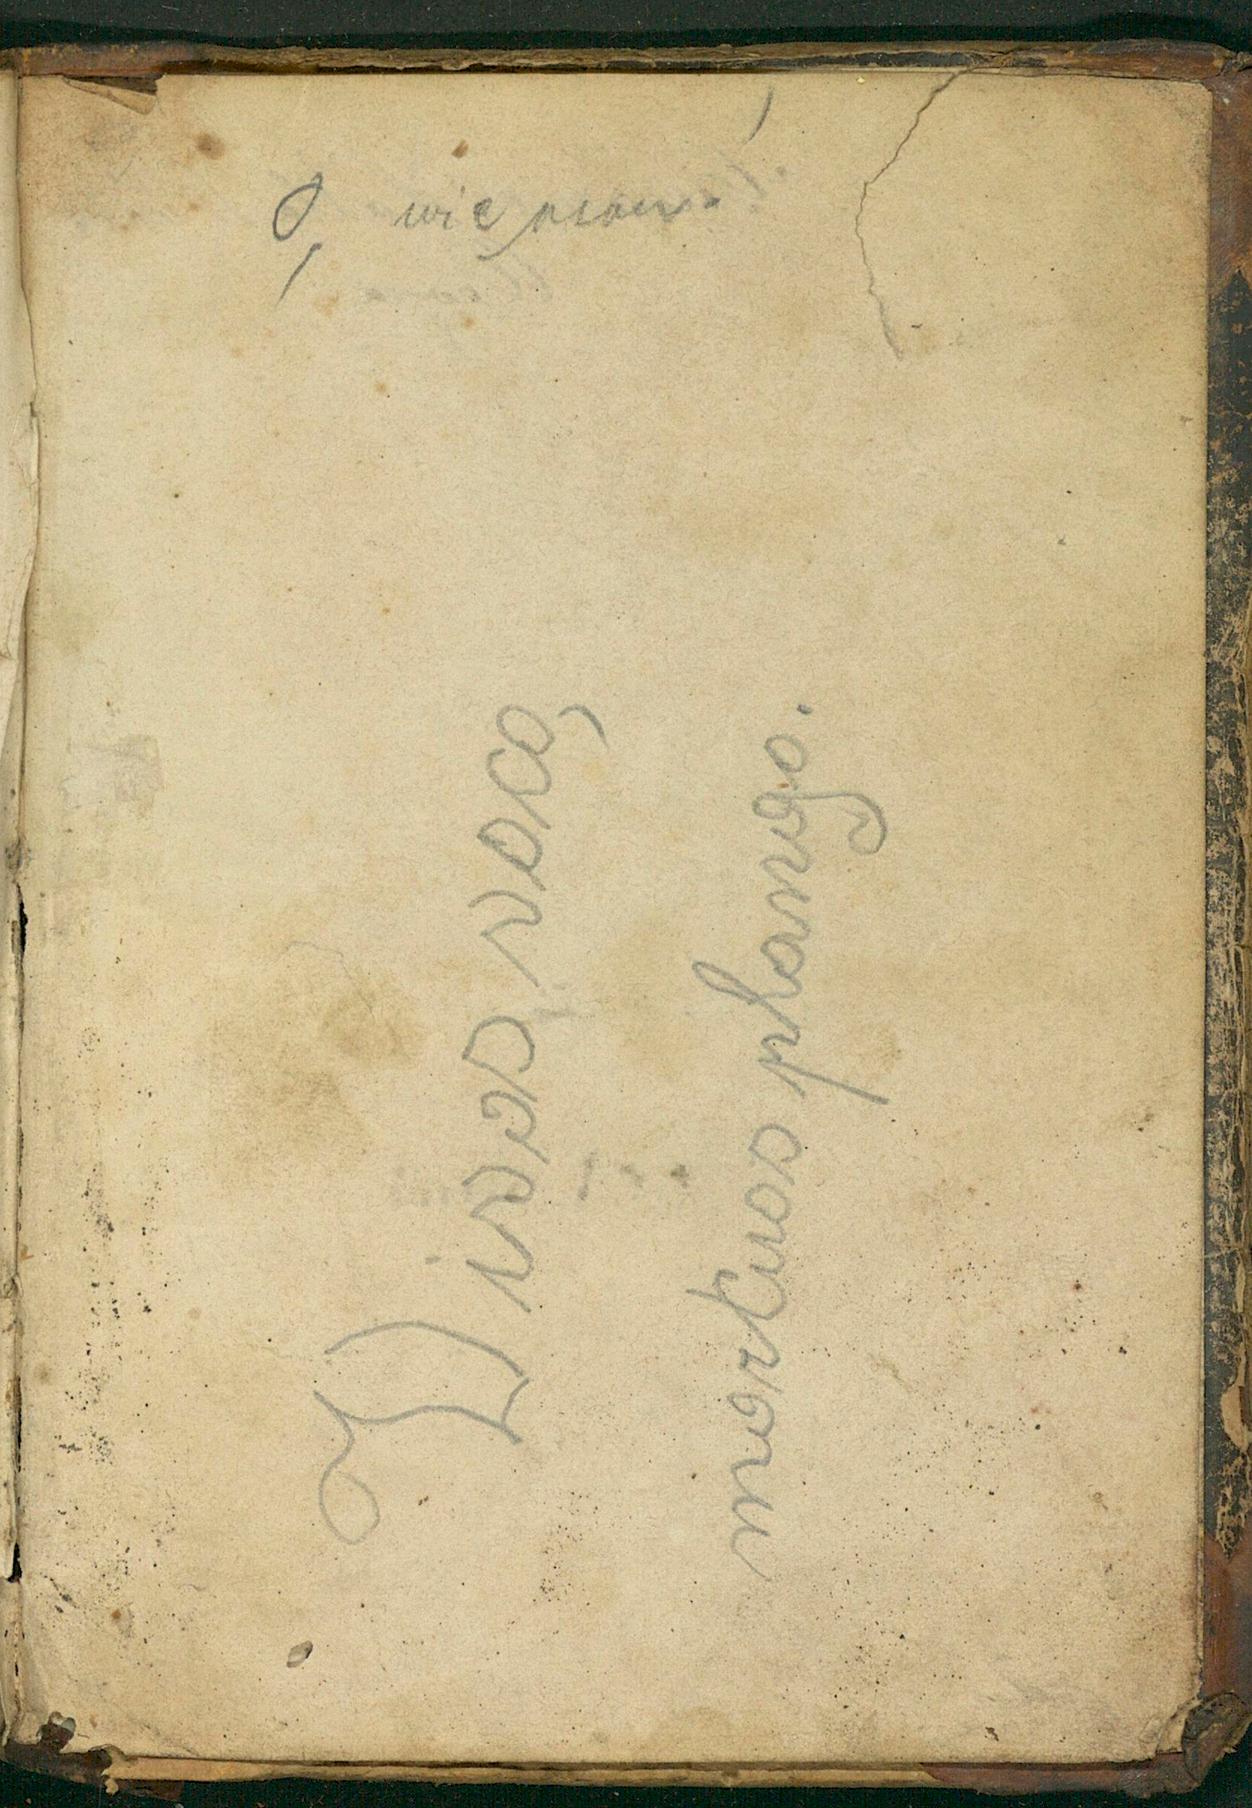 O, wie
Vivos voco,
mortuos plango.